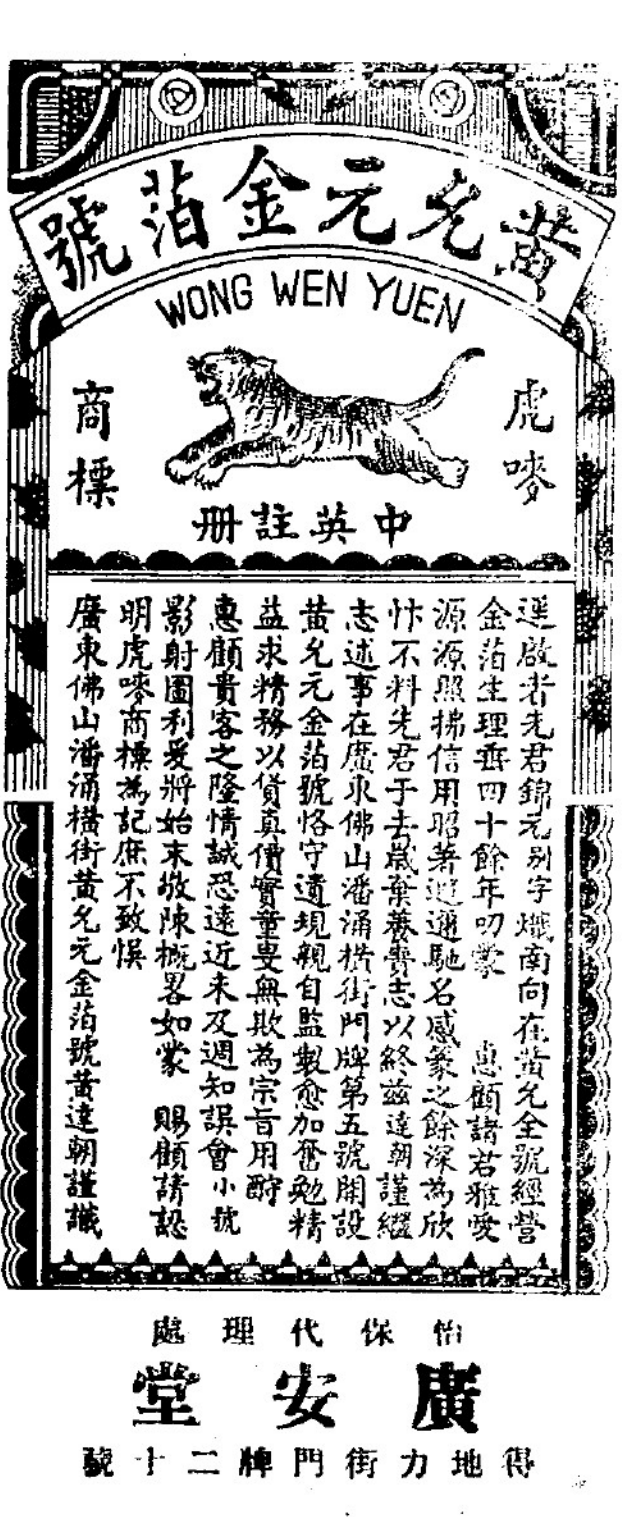 黃允元金箔號
WONG WEN YUEN
虎嘜
商標
中英註冊
逕啟者先君錦元別字熾南向在黃允全號經營
金箔生理垂四十餘年叨蒙　惠顧諸君雅愛
源源照拂信用昭著遐邇馳名感篆之餘深為欣
忭不料先君于去歲棄養賫志以終茲達朝謹繼
志述事在廣東佛山潘涌橫街門牌第五號開設
黃允元金箔號恪守遺規親自監製愈加奮勉精
益求精務以貨真價實童叟無欺為宗旨用酧
惠顧貴客之隆情誠恐遠近未及週知誤會小號
影射圖利爰將始末敬陳概畧如蒙　賜顧請認
明虎嘜商標為記庶不致悞
廣東佛山潘涌橫街黃允元金箔號黃達朝謹讖
怡保代理處
廣安堂
得地力街門牌二十號